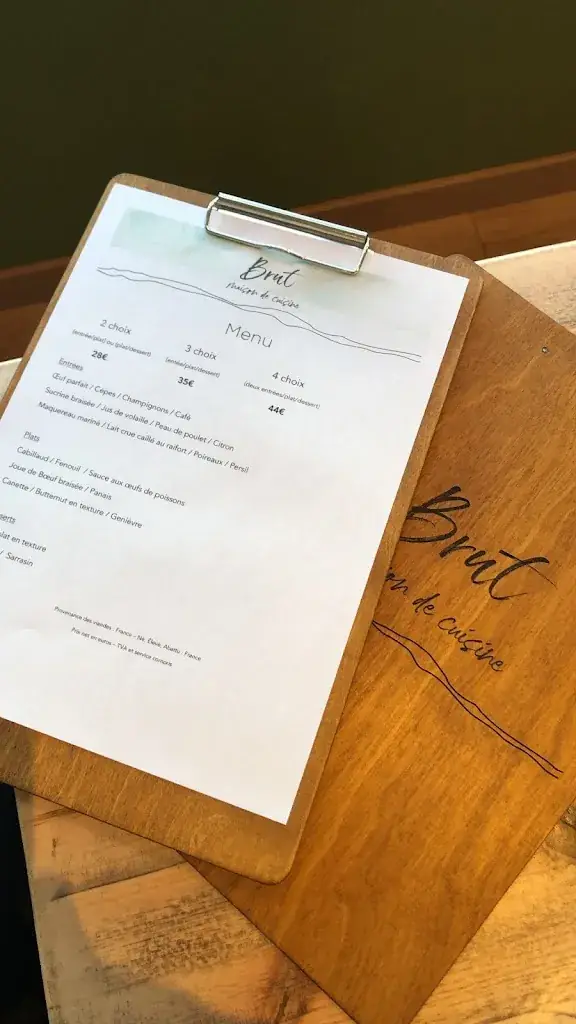 Brut
maison de cuisine
Menu
2 choix
(entrée/plat) ou (plat/dessert)
28€
3 choix
(entrée/plat/dessert)
35€
4 choix
(deux entrées/plat/dessert)
44€
Entrées
Œuf parfait / Cèpes / Champignons / Café
Sucrine braisée / Jus de volaille / Peau de poulet / Citron
Maquereau mariné / Lait crue caillé au raifort / Poireaux / Persil
Plats
Cabillaud / Fenouil / Sauce aux œufs de poissons
Joue de Bœuf braisée / Panais
Canette / Butternut en texture / Genièvre
serts
lat en texture
/ Sarrasin
Provenance des viandes : France – Né, Élevé, Abattu : France
Prix net en euros – TVA et service compris
Brut
de cuisine